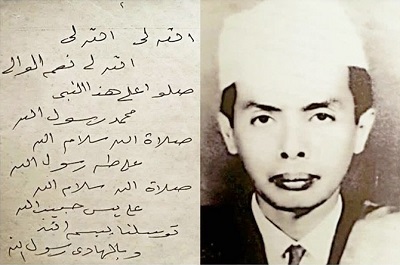 الله لي الله لي
الله لي نعم الوالي
صلوا على هذا النبي
محمد رسول الله
صلاة الله سلام الله
على طه رسول الله
صلاة الله سلام الله
على يس حبيب الله
توسلنا ببسم الله
وبالهادى رسول الله